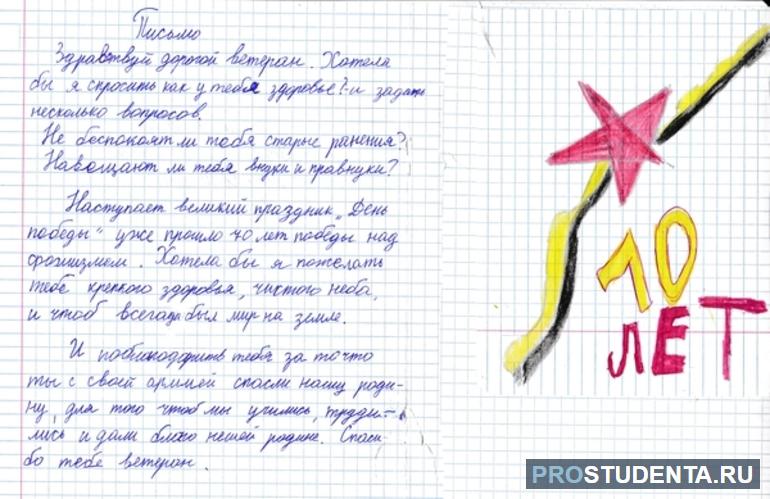 Письмо
Здравствуй дорогой ветеран. Хотела
бы я спросить как у тебя здоровье? и задать
несколько вопросов.
Не беспокоят ли тебя старые ранения?
Навещают ли тебя внуки и правнуки?
Наступает великий праздник „День
победы" уже прошло 70 лет победы над
фашизмом. Хотела бы я пожелать
тебе крепкого здоровья, чистого неба,
и чтоб всегда был мир на земле.
И поблагодарить тебя за то что
ты с своей армией спасли нашу роди-
ну, для того чтоб мы учились, труди-
лись, и дали благо нашей родине. Спаси-
бо тебе ветеран.
70
ЛЕТ
PROSTUDENTA.RU